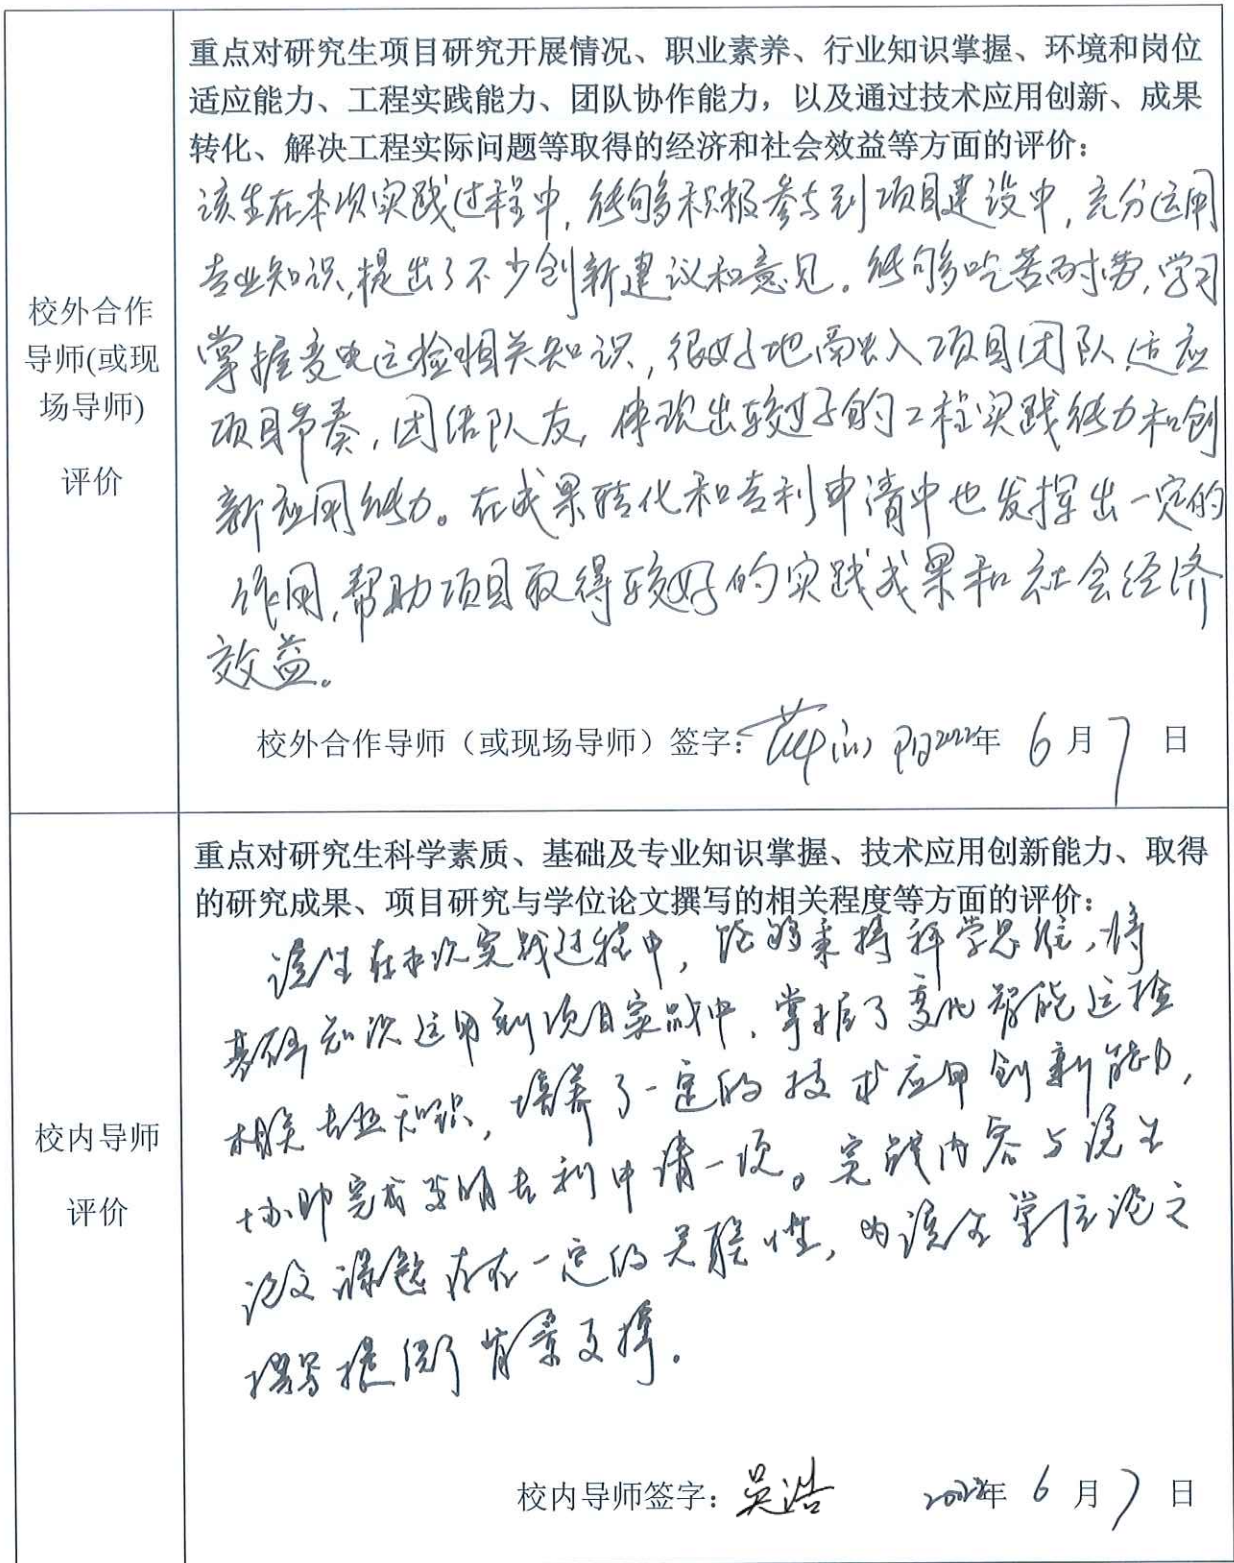 重点对研究生项目研究开展情况、职业素养、行业知识掌握、环境和岗位
适应能力、工程实践能力、团队协作能力，以及通过技术应用创新、成果
转化、解决工程实际问题等取得的经济和社会效益等方面的评价：
该生在本次实践过程中，能够积极参与到项目建设中，充分运用
专业知识，提出了不少创新建议和意见。能够吃苦耐劳，学习
掌握变电运检相关知识，很好地融入项目团队，适应
项目节奏，团结队友，体现出较好的工程实践能力和创
新应用能力。在成果转化和专利申请中也发挥出一定的
作用，帮助项目取得较好的实践成果和社会经济
效益。
校外合作
导师(或现
场导师)
评价
校外合作导师（或现场导师）签字： 2022年 6月7日
重点对研究生科学素质、基础及专业知识掌握、技术应用创新能力、取得
的研究成果、项目研究与学位论文撰写的相关程度等方面的评价：
该生在本次实践过程中，能够秉持科学思维，将
基础知识运用到项目实践中，掌握了变电智能运检
相关专业知识，培养了一定的技术应用创新能力，
协助完成发明专利申请一项。实践内容与该生
论文课题存在一定的关联性，为该生学位论文
撰写提供了背景支撑。
校内导师
评价
校内导师签字：吴浩 2022年 6月7日